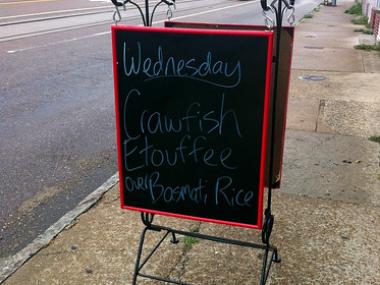 Wednesday
Crawfish
Etouffee
over Basmati Rice